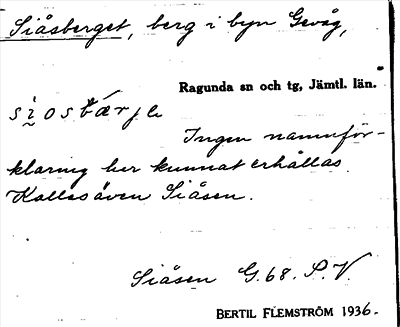 Siåsberget, berg i byn Gevåg,
Ragunda sn och tg, Jämtl. län.
Ingen namnför-
klaring har kunnat erhållas.
Kallas även Siåsen.
Siåsen G.68. S.V.
BERTIL FLEMSTRÖM 1936.